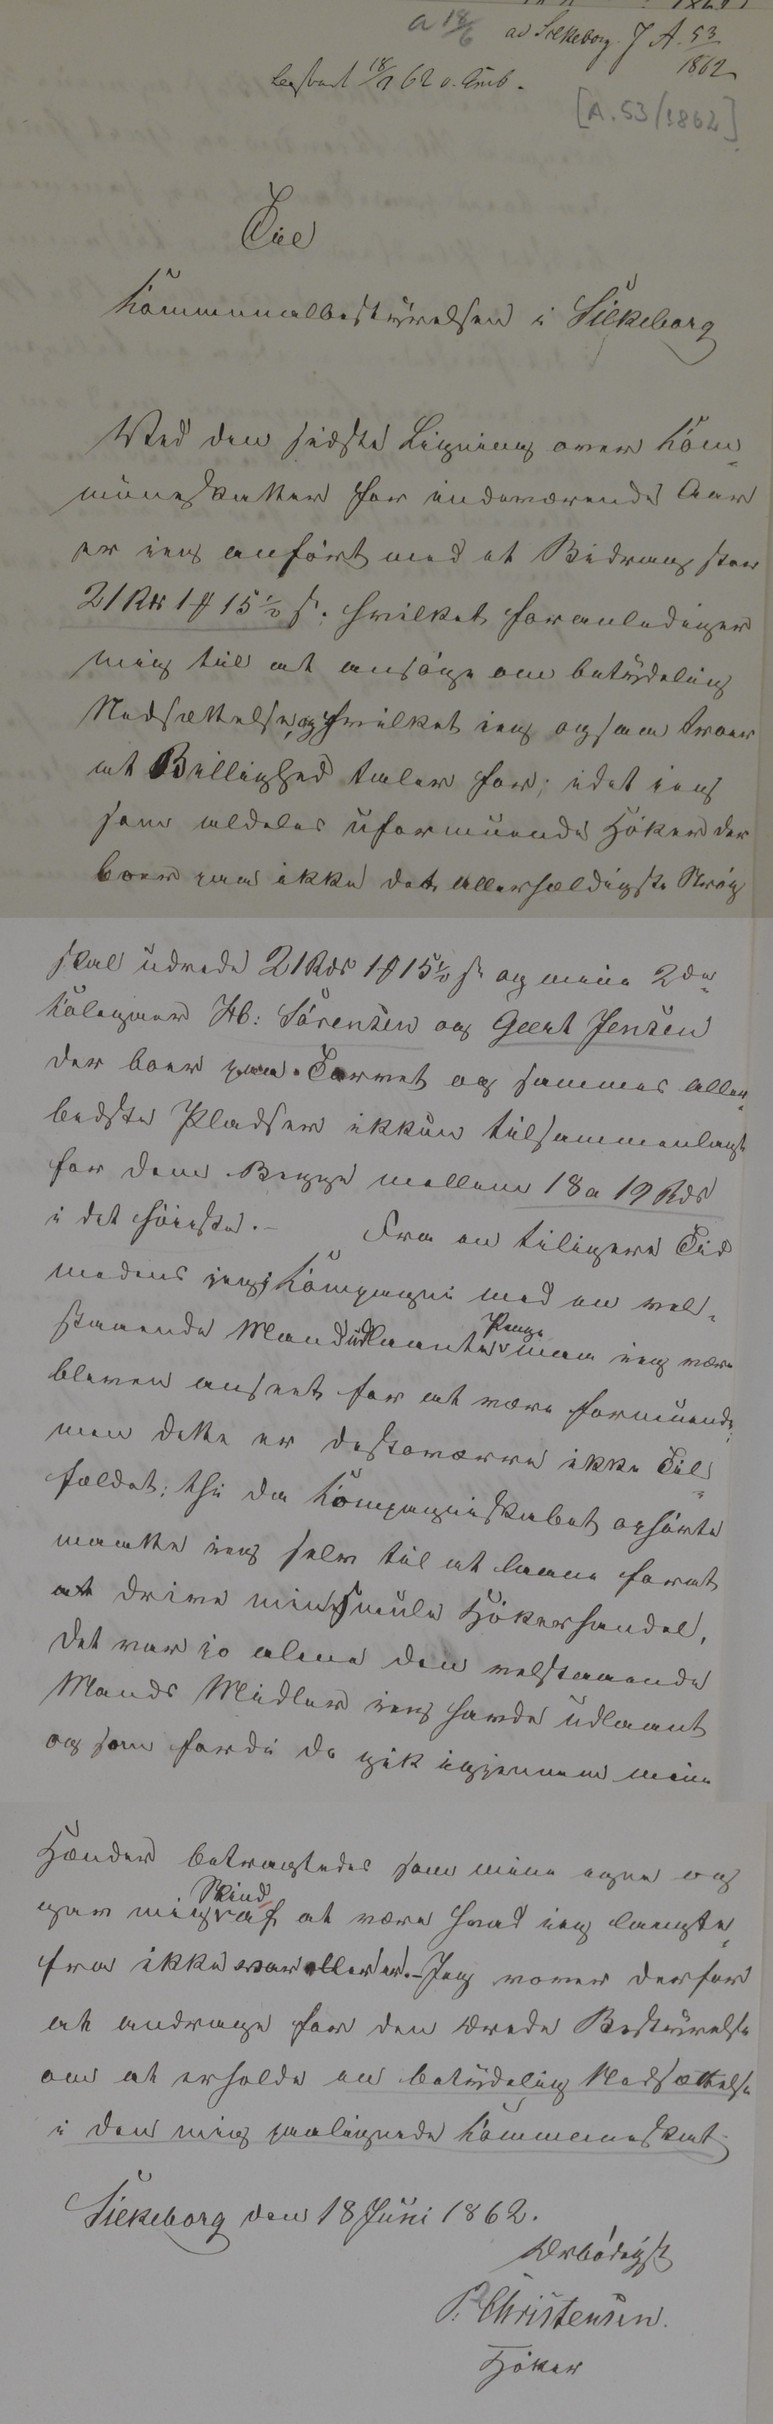 a 18/6 ad Silkeborg J. A. 53/1862
18/6 62
[A. 53/1862]
Til
Kommunalbestÿrelsen i Silkeborg
Ved den sidste Ligning over Kom-
muneskatter for indeværende Aar
er ieg anført med et Bidrag stor
21 Rds 1 # 15 1/2 s. hvilket foranlediger
mig til at ansøge om betÿdelig
Nedsættelse, og hvilket ieg ogsaa troer
at Billighed taler for; idet ieg
som aldeles uformuende Høker der
boer paa ikke det allerheldigste Strøg
skal udrede 21 Rds 1 # 15 1/2 s. og mine 2de
Koleger Sørensen og Geert Jensen
der boer paa Torvet og sammes aller-
bedste Pladser ikkun tilsammenlagt
for dem Begge mellem 18 a 19 Rds
i det høieste. — Fra en tiligere Tid
medens ieg i Kompagni med en vel-
staaende Mand udlaante Penge maa ieg være
bleven anseet for at være formuende,
men dette er desværre ikke Til-
fældet; thi da Kompagniskabet ophørte
maatte ieg selv til at laane forat
at drive min Smule Høkerhandel,
det var jo alene den velstaaende
Mands Midler ieg havde udlaant
og som fordi de gik igjennem mine
Hænder betragtedes som mine egne og
gav mig Skind af at være hvad ieg langt-
fra ikke var eller er. – Jeg vover derfor
at andrage for den ærede Bestÿrelse
om at erholde en betÿdelig Nedsættelse
i den mig paalignede Kommuneskat.
Silkeborg den 18 Juni 1862.
Ærbødigst
P. Christensen.
Høker